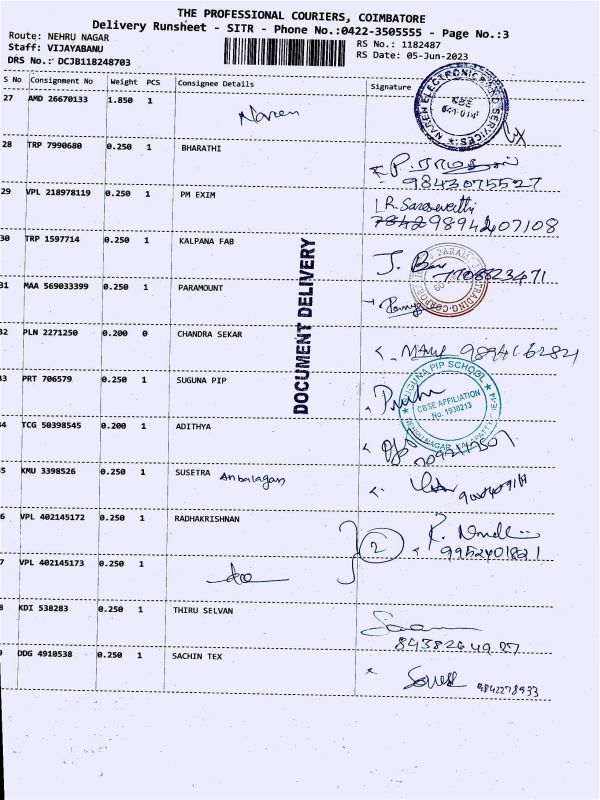 THE PROFESSIONAL COURIERS, COIMBATORE
Delivery Runsheet - SITR - Phone No.:0422-3505555 - Page No.:3
Route: NEHRU NAGAR
Staff: VIJAYABANU
DRS No.: DCJB118248703
RS No.: 1182487
RS Date: 05-Jun-2023
S No Consignment No Weight PCS Consignee Details Signature
27 AMD 26670133 1.850 1 Naren
28 TRP 7990680 0.250 1 BHARATHI
9843075527
29 VPL 218978119 0.250 1 PM EXIM R. Saraswathi
9894207108
30 TRP 1597714 0.250 1 KALPANA FAB
7708823471
31 MAA 569033399 0.250 1 PARAMOUNT
32 PLN 2271250 0.200 0 CHANDRA SEKAR
33 PRT 706579 0.250 1 SUGUNA PIP
SUGUNA PIP SCHOOL
CBSE AFFILIATION
No. 1930213
34 TCG 50398545 0.200 1 ADITHYA
35 KMU 3398526 0.250 1 SUSETRA Anbalagan
36 VPL 402145172 0.250 1 RADHAKRISHNAN
2
9952401821
37 VPL 402145173 0.250 1
38 KDI 538283 0.250 1 THIRU SELVAN
39 DDG 4910538 0.250 1 SACHIN TEX
9842278933
DOCUMENT DELIVERY